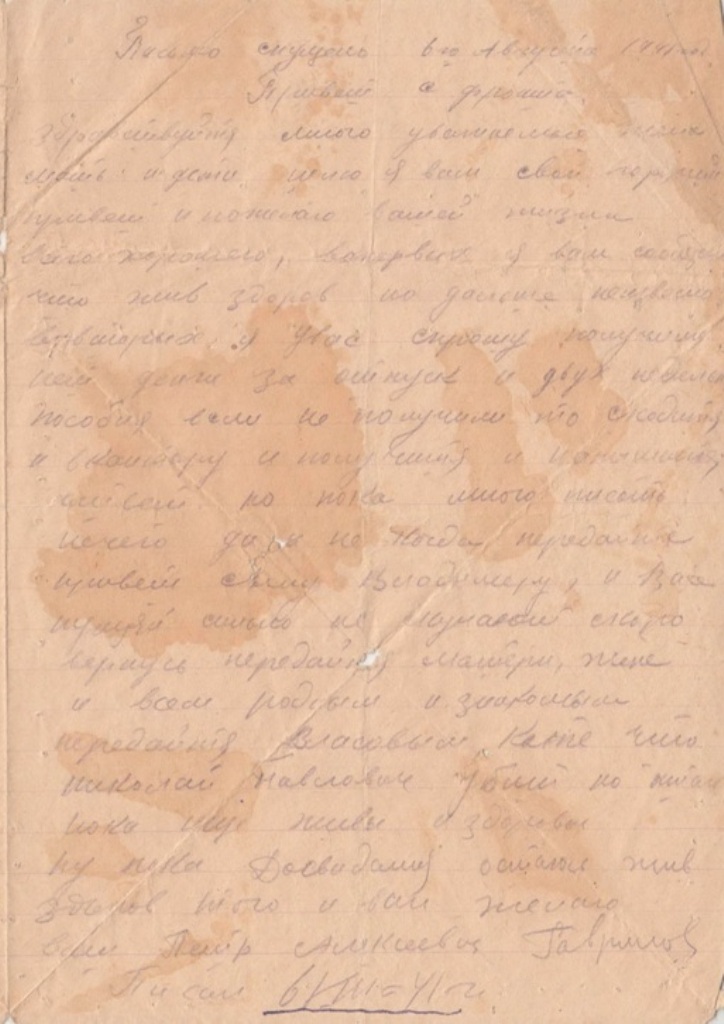 Письмо пущено 6го Августа 1941 г.
Привет с фронта.
Здравствуйтя много уважаемые мои
мать и дети шлю я вам свой горячий
привет и пожелаю вашей жизни
всего хорошего, вопервых я вам сообщаю
что жив здоров но дальше неизвесно
вовторых я у вас спрошу получили
деньги за отпуск и двух недельн
пособия если не получили то сходитя
в контору и получитя и
но пока много писать
нечего да и не когда передайтя
привет сыну Владимеру, и
пущай сильно не скоро
вернусь передайтя матери, жене
и всем родным и знакомым
передайтя Власовым Кате что
николай Павлович убит но
пока ище живы и здоровы
ну пока Досвидания остаюсь жив
здоров того и вам желаю
ваш Петр Алексеевич Гаврилов
Писал 6/VIII-41 г.